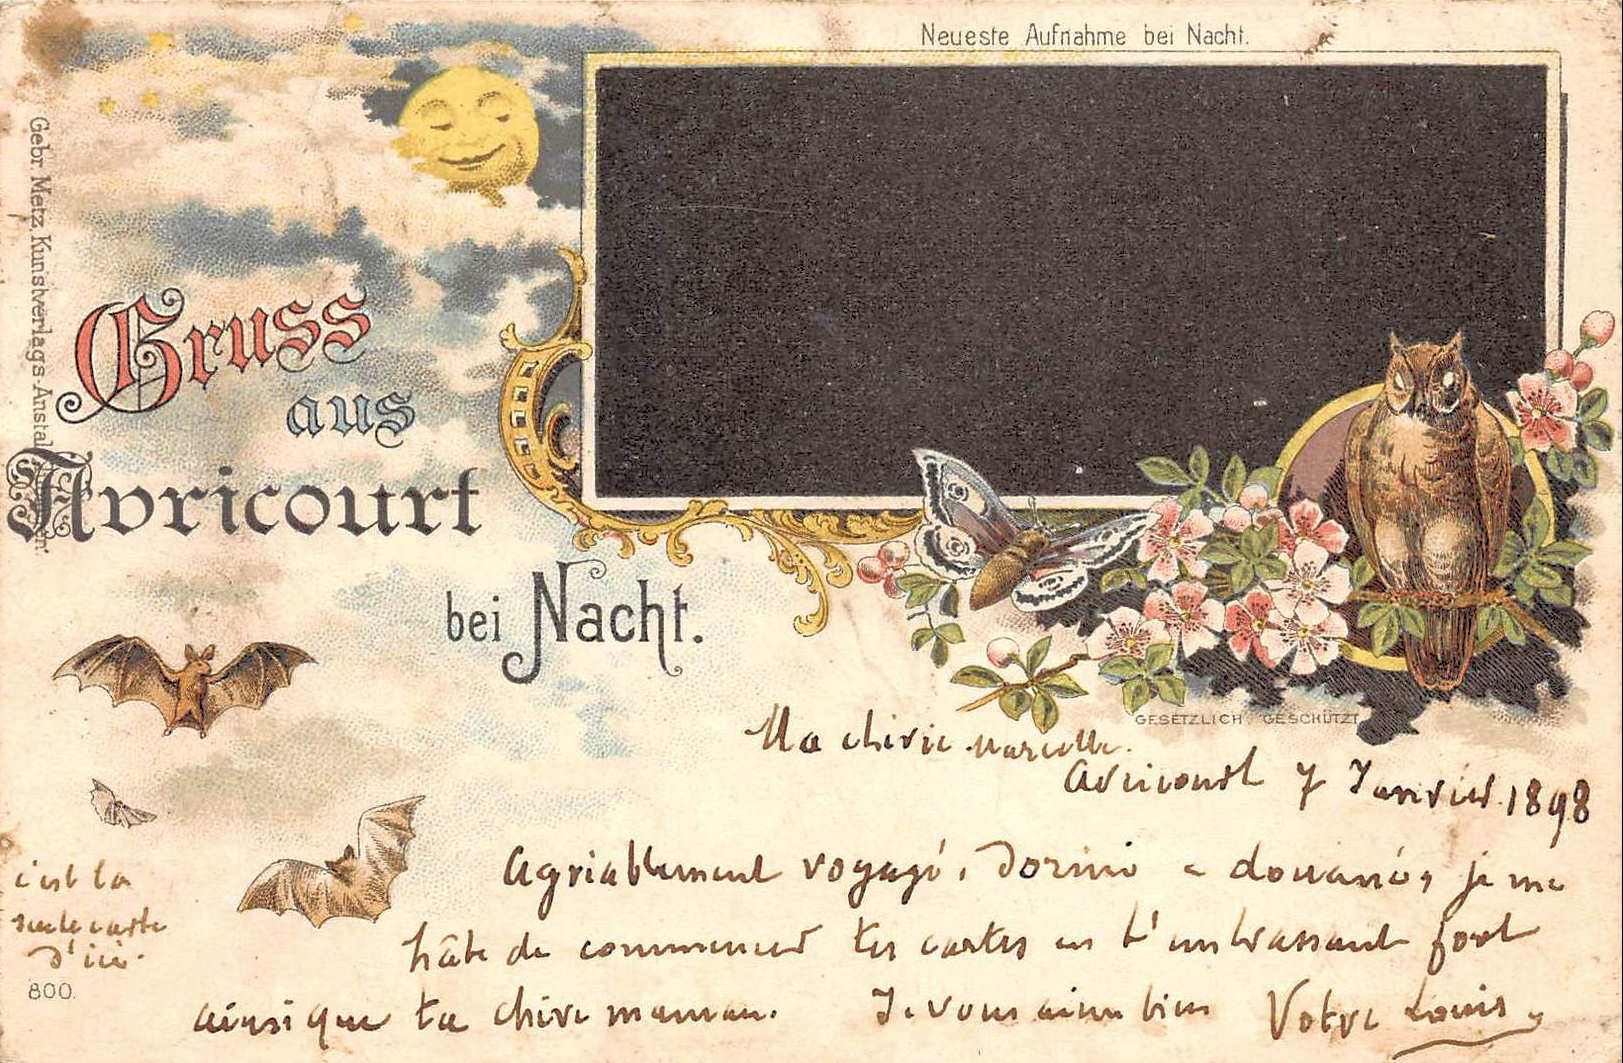 Neueste Aufnahme bei Nacht.
Gebr. Metz, Kunstverlags-Anstalt
Gruss
aus
Avricourt
bei Nacht.
GESETZLICH GESCHÜTZT
Ma chérie Marcelle.
Avricourt 7 Janvier 1898
Agréablement voyagé, dormi douané, je me
hâte de commencer tes cartes en t'embrassant fort
ainsi que ta chère maman. Je vous aime bien Votre Louis
c'est la
seule carte
d'ici.
800.